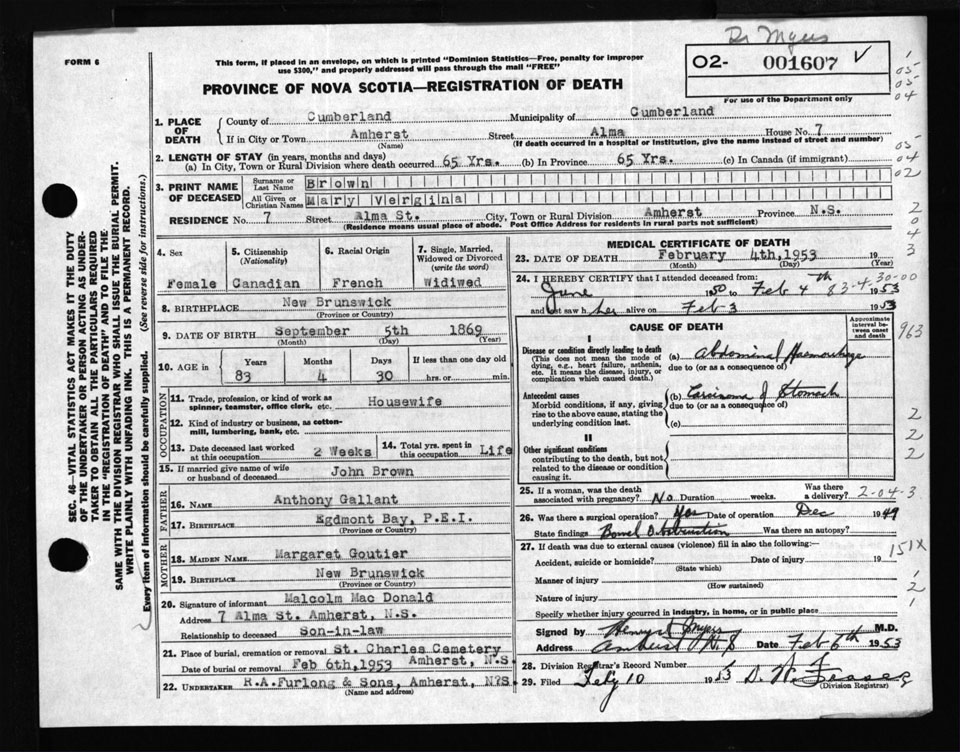 Dr Myers
FORM 6
This form, if placed in an envelope, on which is printed "Dominion Statistics—Free, penalty for improper
use $300," and properly addressed will pass through the mail "FREE"
O2- 001607 V
For use of the Department only
PROVINCE OF NOVA SCOTIA—REGISTRATION OF DEATH
1. PLACE OF DEATH
County of Cumberland Municipality of Cumberland
If in City or Town Amherst (Name) Street Alma House No. 7
(If death occurred in a hospital or Institution, give the name instead of street and number)
2. LENGTH OF STAY (in years, months and days)
(a) In City, Town or Rural Division where death occurred 65 Yrs. (b) In Province 65 Yrs. (c) In Canada (if immigrant)
3. PRINT NAME OF DECEASED
Surname or Last Name Brown
All Given or Christian Names Mary Vergina
RESIDENCE No. 7 Street Alma St. City, Town or Rural Division Amherst Province N.S.
(Residence means usual place of abode. Post Office Address for residents in rural parts not sufficient)
4. Sex Female
5. Citizenship (Nationality) Canadian
6. Racial Origin French
7. Single, Married, Widowed or Divorced (write the word) Widiwed
8. BIRTHPLACE New Brunswick
(Province or Country)
9. DATE OF BIRTH September 5th 1869
(Month) (Day) (Year)
10. AGE in Years 83 Months 4 Days 30 If less than one day old hrs. or min.
OCCUPATION
11. Trade, profession, or kind of work as spinner, teamster, office clerk, etc. Housewife
12. Kind of industry or business, as cotton-mill, lumbering, bank, etc.
13. Date deceased last worked at this occupation 2 Weeks
14. Total yrs. spent in this occupation Life
15. If married give name of wife or husband of deceased John Brown
FATHER
16. NAME Anthony Gallant
17. BIRTHPLACE Egdmont Bay, P.E.I.
(Province or Country)
MOTHER
18. MAIDEN NAME Margaret Goutier
19. BIRTHPLACE New Brunswick
(Province or Country)
20. Signature of informant Malcolm Mac Donald
Address 7 Alma St. Amherst, N.S.
Relationship to deceased Son-in-law
21. Place of burial, cremation or removal St. Charles Cemetery
Date of burial or removal Feb 6th,1953 Amherst, N.S
22. UNDERTAKER R.A.Furlong & Sons, Amherst, N?S.
(Name and address)
MEDICAL CERTIFICATE OF DEATH
23. DATE OF DEATH February 4th,1953 19
(Month) (Day) (Year)
24. I HEREBY CERTIFY that I attended deceased from:
June 1950 to Feb 4th 1953
83-4-30-00
and last saw her alive on Feb 3 1953
CAUSE OF DEATH
Approximate interval between onset and death
I
Disease or condition directly leading to death (a) Abdominal Haemorrhage
(This does not mean the mode of dying, e.g., heart failure, asthenia, etc. It means the disease, injury, or complication which caused death.)
due to (or as a consequence of)
Antecedent causes (b) Carcinoma of Stomach
Morbid conditions, if any, giving rise to the above cause, stating the underlying condition last.
due to (or as a consequence of)
(c)
II
Other significant conditions
contributing to the death, but not related to the disease or condition causing it.
25. If a woman, was the death associated with pregnancy? No Duration weeks. Was there a delivery? 2-04-3
26. Was there a surgical operation? Yes Date of operation Dec 1949
State findings Bowel Obstruction Was there an autopsy?
27. If death was due to external causes (violence) fill in also the following:—
Accident, suicide or homicide? Date of injury 19
(State which)
Manner of injury
(How sustained)
Nature of injury
Specify whether injury occurred in industry, in home, or in public place
Signed by Henry Myers M.D.
Address Amherst N.S Date Feb 6th 1953
28. Division Registrar's Record Number
29. Filed Feby 10 1953 D. W.
(Division Registrar)
SEC. 46—VITAL STATISTICS ACT MAKES IT THE DUTY
OF THE UNDERTAKER OR PERSON ACTING AS UNDER-
TAKER TO OBTAIN ALL THE PARTICULARS REQUIRED
IN THE "REGISTRATION OF DEATH" AND TO FILE THE
SAME WITH THE DIVISION REGISTRAR WHO SHALL ISSUE THE BURIAL PERMIT.
WRITE PLAINLY WITH UNFADING INK. THIS IS A PERMANENT RECORD.
Every item of information should be carefully supplied. (See reverse side for instructions.)
1
05
05
04
05
04
02
2
0
4
3
963
2
2
2
151X
1
2